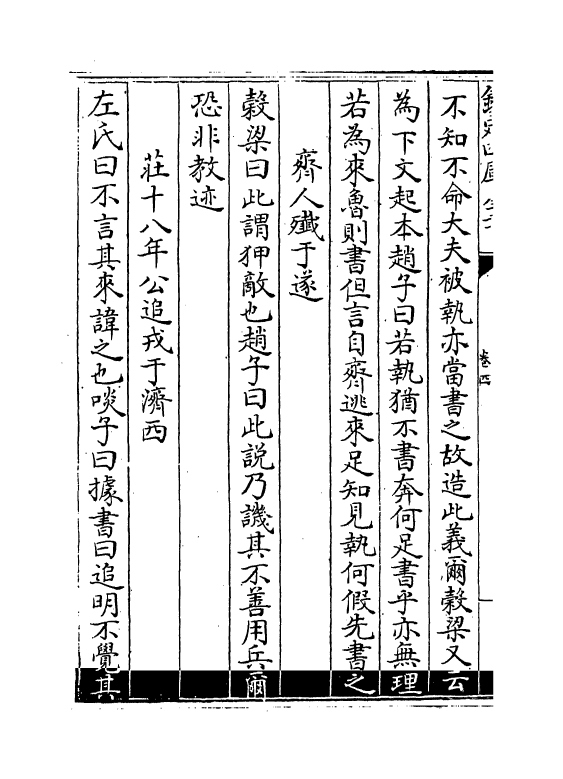 不知不命大夫被執亦當書之故造此義爾榖梁又云
為下文起本趙子曰若執猶不書奔何足書乎亦無理
若為來魯則書但言自齊逃來足知見執何假先書之
齊人殱于遂
榖梁曰此謂狎敵也趙子曰此説乃譏其不善用兵爾
恐非教迹
莊十八年公追戎于濟西
左氏曰不言其來諱之也啖子曰據書曰追明不覺其
卷四